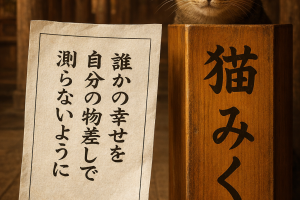 誰かの幸せを
自分の物差しで
測らないように
猫みく